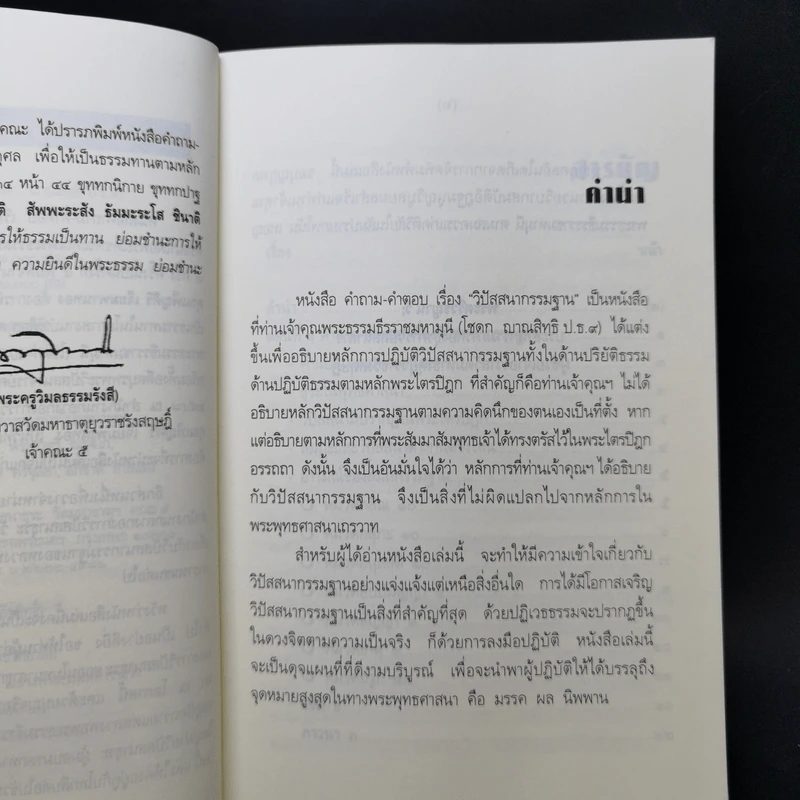 คณะ ได้ปรารภพิมพ์หนังสือคำถาม-
กุศล เพื่อให้เป็นธรรมทานตามหลัก
๑๔ หน้า ๔๔ ขุททกนิกาย ขุททกปาฐ
สัพพะระสัง ธัมมะระโส ชินาติ
รให้ธรรมเป็นทาน ย่อมชำนะการให้
ความยินดีในพระธรรม ย่อมชำนะ
พระครูวิมลธรรมรังสี)
วาสวัดมหาธาตุยุวราชรังสฤษฎิ์
เจ้าคณะ ๕
คำนำ
หนังสือ คำถาม-คำตอบ เรื่อง "วิปัสสนากรรมฐาน" เป็นหนังสือ
ที่ท่านเจ้าคุณพระธรรมธีรราชมหามุนี (โชดก ญาณสิทฺธิ ป.ธ.๙) ได้แต่ง
ขึ้นเพื่ออธิบายหลักการปฏิบัติวิปัสสนากรรมฐานทั้งในด้านปริยัติธรรม
ด้านปฏิบัติธรรมตามหลักพระไตรปิฎก ที่สำคัญก็คือท่านเจ้าคุณฯ ไม่ได้
อธิบายหลักวิปัสสนากรรมฐานตามความคิดนึกของตนเองเป็นที่ตั้ง หาก
แต่อธิบายตามหลักการที่พระสัมมาสัมพุทธเจ้าได้ทรงตรัสไว้ในพระไตรปิฎก
อรรถถา ดังนั้น จึงเป็นอันมั่นใจได้ว่า หลักการที่ท่านเจ้าคุณฯ ได้อธิบาย
กับวิปัสสนากรรมฐาน จึงเป็นสิ่งที่ไม่ผิดแปลกไปจากหลักการใน
พระพุทธศาสนาเถรวาท
สำหรับผู้ได้อ่านหนังสือเล่มนี้ จะทำให้มีความเข้าใจเกี่ยวกับ
วิปัสสนากรรมฐานอย่างแจ่งแจ้งแต่เหนือสิ่งอื่นใด การได้มีโอกาสเจริญ
วิปัสสนากรรมฐานเป็นสิ่งที่สำคัญที่สุด ด้วยปฏิเวธธรรมจะปรากฏขึ้น
ในดวงจิตตามความเป็นจริง ก็ด้วยการลงมือปฏิบัติ หนังสือเล่มนี้
จะเป็นดุจแผนที่ที่ดีงามบริบูรณ์ เพื่อจะนำพาผู้ปฏิบัติให้ได้บรรลุถึง
จุดหมายสูงสุดในทางพระพุทธศาสนา คือ มรรค ผล นิพพาน